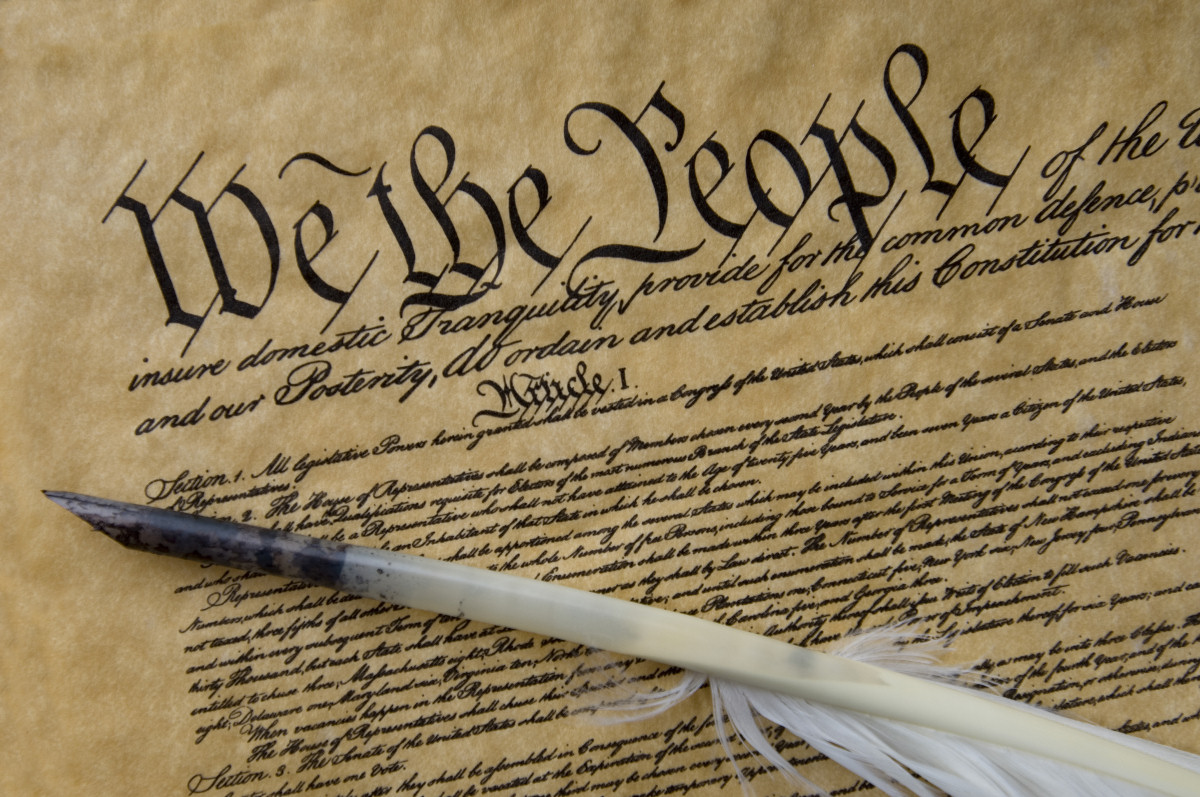 We the People of the
insure domestic Tranquility, provide for the common defence,
and our Posterity, do ordain and establish this Constitution for
Article. I.
Section. 1. All legislative Powers herein granted shall be vested in a Congress of the United States, which shall consist of a Senate and House
of Representatives.
2. The House of Representatives shall be composed of Members chosen every second Year by the People of the several States, and the Electors
shall have Qualifications requisite for Electors of the most numerous Branch of the State Legislature.
be a Representative who shall not have attained to the Age of twenty five Years, and been seven Years a Citizen of the United States,
and who shall an Inhabitant of that State in which he shall be chosen.
Representatives shall be apportioned among the several States which may be included within this Union, according to their respective
Numbers, which shall be the whole Number of free Persons, including those bound to Service for a Term of Years, and excluding Indians
not taxed, three fifths of all other Enumeration shall be made within three Years after the first Meeting of the Congress of the United States
and within every subsequent Term of ten they shall by Law direct. The Number of Representatives shall not exceed one for every
thirty Thousand, but each State shall have at and until such enumeration shall be made, the State of New Hampshire shall be
entitled to chuse three, Massachusetts eight, Rhode Plantations one, Connecticut five, New York six, New Jersey four, Pennsylvania
eight, Delaware one, Maryland six, Virginia ten, North Carolina five, and Georgia three.
When vacancies happen in the Representation from any Authority thereof shall issue Writs of Election to fill such Vacancies.
The House of Representatives shall chuse their Speaker and of Impeachment.
Section. 3. The Senate of the United States shall be Legislature thereof for six Years; and
shall have one Vote.
after they shall be assembled in Consequence of the as may be into three Classes.
be vacated at the Expiration of the of the fourth Year, and of the
third may be chosen every
make temporary Appointments